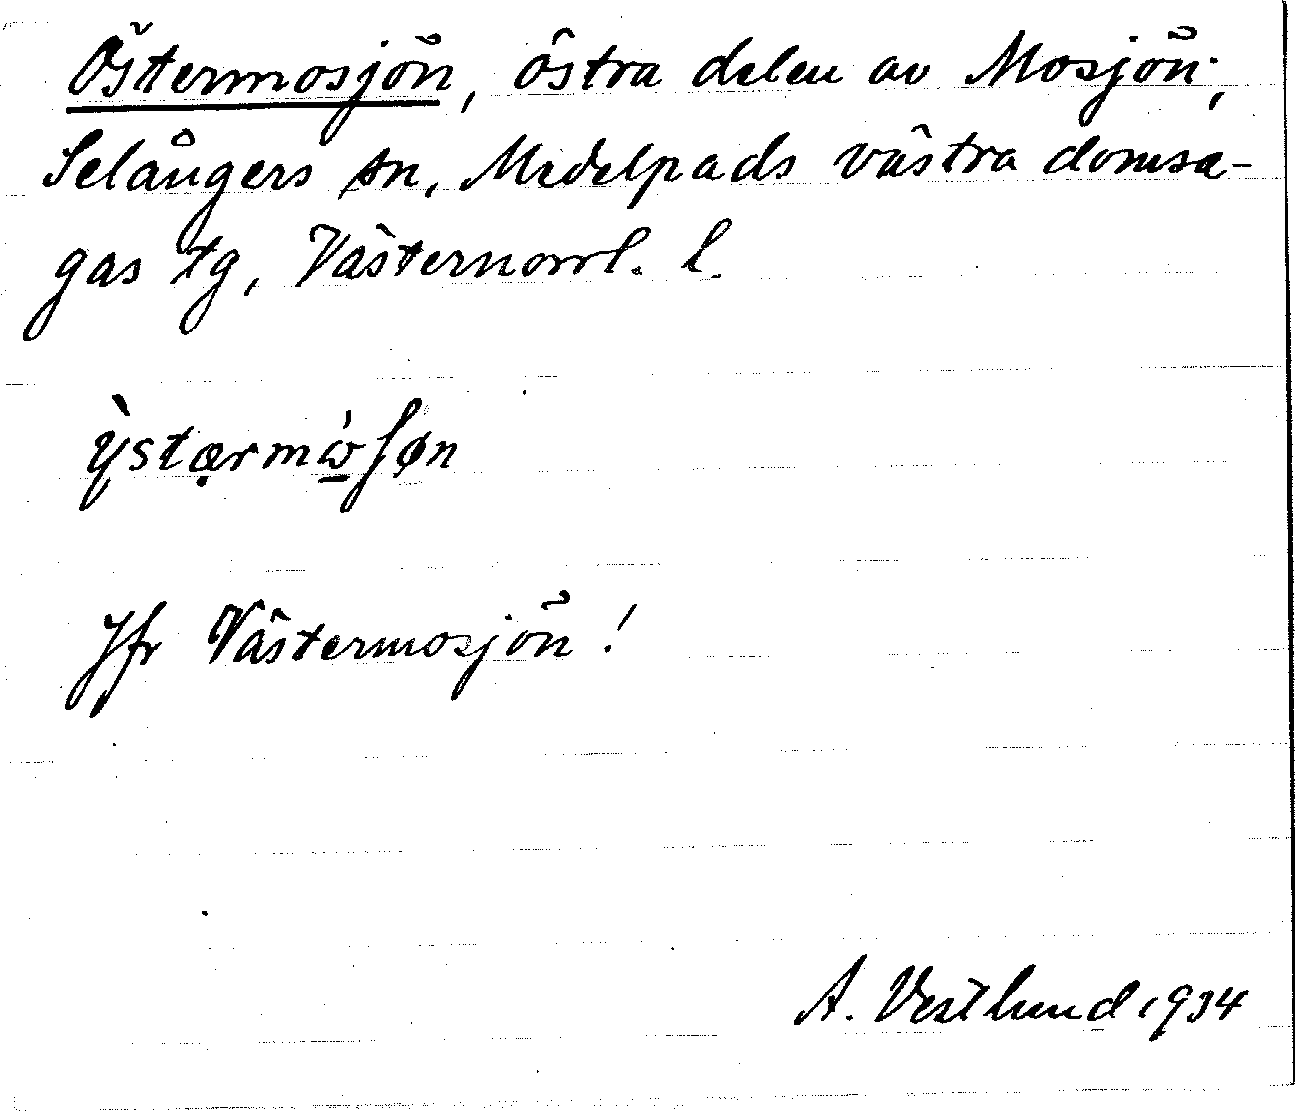 Östermosjön, östra delen av Mosjön;
Selångers sn, Medelpads västra domsa-
gas tg, Västernorrl. l.
ỳstærmώ̱ʃøn
Jfr Västermosjön!
A. Vestlund 1934